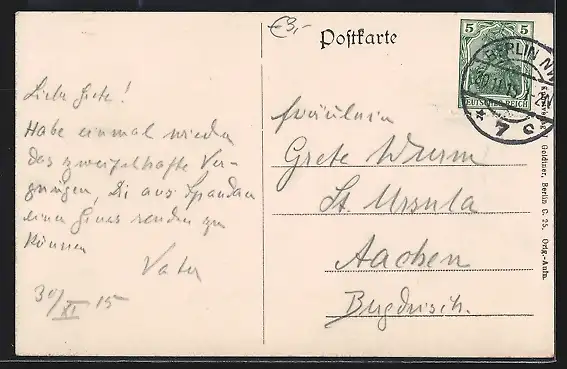 €3,-
Postkarte
5 5
DEUTSCHES REICH
BERLIN NW
30.11.15
* 7 c
Liebe Grete!
Habe einmal wieder
das zweifelhafte Ver-
gnügen, Dir aus Spandau
einen Gruss senden zu
können
Vater
30/XI 15
Fräulein
Grete Wurm
St Ursula
Aachen
Goldiner, Berlin C. 25. Orig.-Aufn.